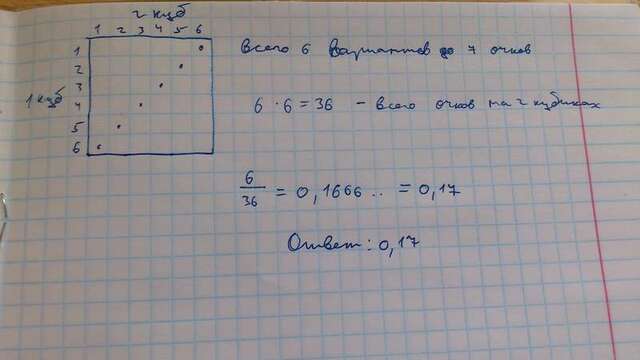 2 куб
1 2 3 4 5 6
1 куб
1
2
3
4
5
6
Всего 6 вариантов 7 очков
6 · 6 = 36 - всего очков на 2 кубиках
6/36 = 0,1666.. = 0,17
Ответ: 0,17